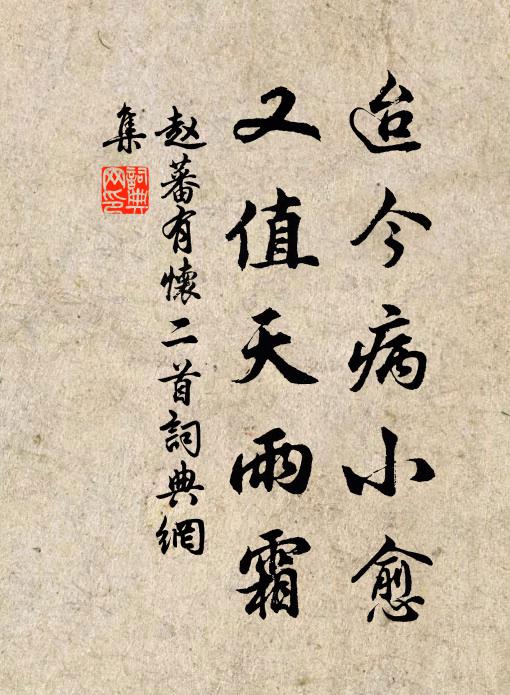 迨今病小愈
又值天雨霜
赵蕃有懷二首詞典網
集
詞典网印